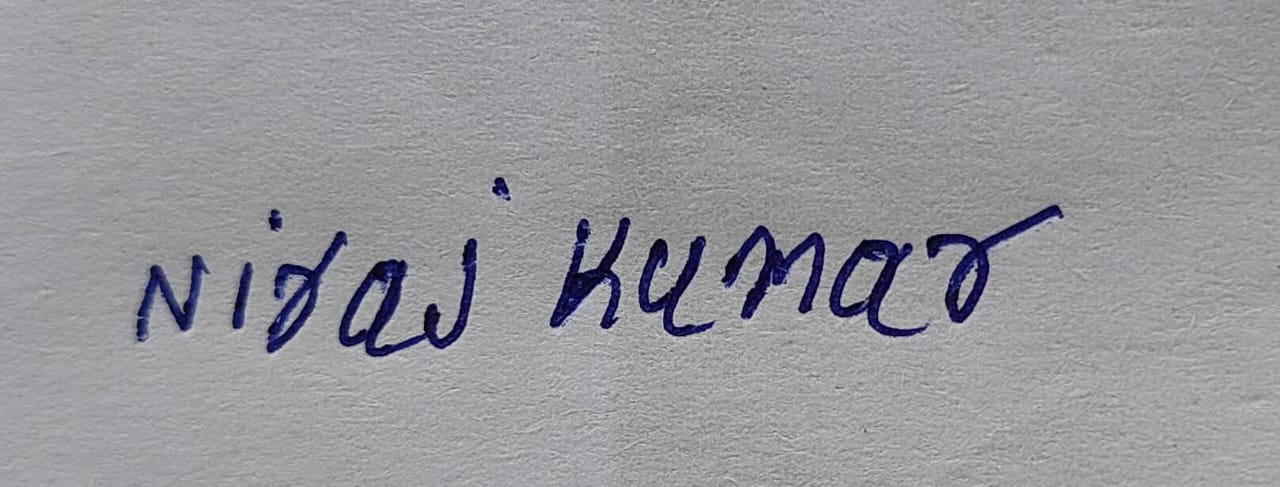 Niraj Kumar